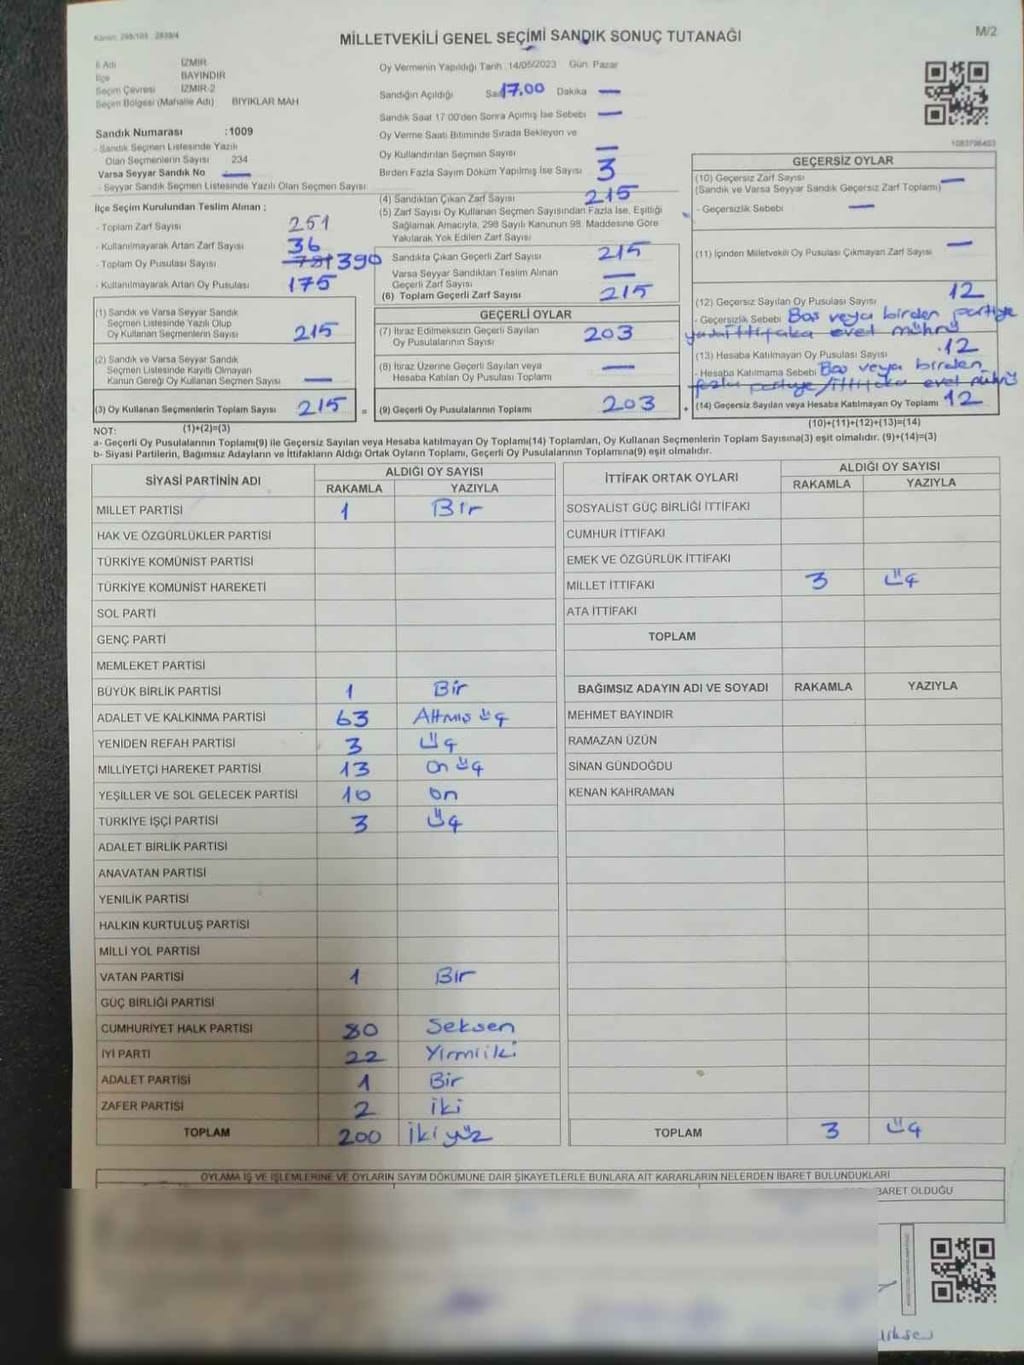 Kanun: 298/105 2839/4
MİLLETVEKİLİ GENEL SEÇİMİ SANDIK SONUÇ TUTANAĞI
M/2
İl Adı İZMİR
İlçe BAYINDIR
Seçim Çevresi İZMİR-2
Seçim Bölgesi (Mahalle Adı) BIYIKLAR MAH
Sandık Numarası :1009
- Sandık Seçmen Listesinde Yazılı
Olan Seçmenlerin Sayısı 234
Varsa Seyyar Sandık No —
- Seyyar Sandık Seçmen Listesinde Yazılı Olan Seçmen Sayısı
İlçe Seçim Kurulundan Teslim Alınan ;
- Toplam Zarf Sayısı 251
- Kullanılmayarak Artan Zarf Sayısı 36
- Toplam Oy Pusulası Sayısı 390
- Kullanılmayarak Artan Oy Pusulası 175
(1) Sandık ve Varsa Seyyar Sandık
Seçmen Listesinde Yazılı Olup
Oy Kullanan Seçmenlerin Sayısı 215
(2) Sandık ve Varsa Seyyar Sandık
Seçmen Listesinde Kayıtlı Olmayan
Kanun Gereği Oy Kullanan Seçmen Sayısı —
(3) Oy Kullanan Seçmenlerin Toplam Sayısı 215 =
(1)+(2)=(3)
Oy Vermenin Yapıldığı Tarih :14/05/2023 Gün: Pazar
Sandığın Açıldığı Saat 17.00 Dakika —
Sandık Saat 17.00'den Sonra Açılmış İse Sebebi —
Oy Verme Saati Bitiminde Sırada Bekleyen ve
Oy Kullandırılan Seçmen Sayısı —
Birden Fazla Sayım Döküm Yapılmış İse Sayısı 3
(4) Sandıktan Çıkan Zarf Sayısı 215
(5) Zarf Sayısı Oy Kullanan Seçmen Sayısından Fazla İse, Eşitliği
Sağlamak Amacıyla, 298 Sayılı Kanunun 98. Maddesine Göre
Yakılarak Yok Edilen Zarf Sayısı
Sandıkta Çıkan Geçerli Zarf Sayısı 215
Varsa Seyyar Sandıktan Teslim Alınan
Geçerli Zarf Sayısı —
(6) Toplam Geçerli Zarf Sayısı 215
GEÇERLİ OYLAR
(7) İtiraz Edilmeksizin Geçerli Sayılan
Oy Pusulalarının Sayısı 203
(8) İtiraz Üzerine Geçerli Sayılan veya
Hesaba Katılan Oy Pusulası Toplamı —
(9) Geçerli Oy Pusulalarının Toplamı 203 +
GEÇERSİZ OYLAR
(10) Geçersiz Zarf Sayısı —
(Sandık ve Varsa Seyyar Sandık Geçersiz Zarf Toplamı)
- Geçersizlik Sebebi —
(11) İçinden Milletvekili Oy Pusulası Çıkmayan Zarf Sayısı —
(12) Geçersiz Sayılan Oy Pusulası Sayısı 12
- Geçersizlik Sebebi Boş veya birden partiye
ittifaka evet mührü
(13) Hesaba Katılmayan Oy Pusulası Sayısı 12
- Hesaba Katılmama Sebebi Boş veya birden
fazla partiye/ittifaka evet mührü
(14) Geçersiz Sayılan veya Hesaba Katılmayan Oy Toplamı 12
(10)+(11)+(12)+(13)=(14)
NOT:
a- Geçerli Oy Pusulalarının Toplamı(9) ile Geçersiz Sayılan veya Hesaba katılmayan Oy Toplamı(14) Toplamları, Oy Kullanan Seçmenlerin Toplam Sayısına(3) eşit olmalıdır. (9)+(14)=(3)
b- Siyasi Partilerin, Bağımsız Adayların ve İttifakların Aldığı Ortak Oyların Toplamı, Geçerli Oy Pusulalarının Toplamına(9) eşit olmalıdır.
SİYASİ PARTİNİN ADI ALDIĞI OY SAYISI
RAKAMLA YAZIYLA
MİLLET PARTİSİ 1 Bir
HAK VE ÖZGÜRLÜKLER PARTİSİ
TÜRKİYE KOMÜNİST PARTİSİ
TÜRKİYE KOMÜNİST HAREKETİ
SOL PARTİ
GENÇ PARTİ
MEMLEKET PARTİSİ
BÜYÜK BİRLİK PARTİSİ 1 Bir
ADALET VE KALKINMA PARTİSİ 63 Altmış üç
YENİDEN REFAH PARTİSİ 3 üç
MİLLİYETÇİ HAREKET PARTİSİ 13 On üç
YEŞİLLER VE SOL GELECEK PARTİSİ 10 On
TÜRKİYE İŞÇİ PARTİSİ 3 üç
ADALET BİRLİK PARTİSİ
ANAVATAN PARTİSİ
YENİLİK PARTİSİ
HALKIN KURTULUŞ PARTİSİ
MİLLİ YOL PARTİSİ
VATAN PARTİSİ 1 Bir
GÜÇ BİRLİĞİ PARTİSİ
CUMHURİYET HALK PARTİSİ 80 Seksen
İYİ PARTİ 22 Yirmi iki
ADALET PARTİSİ 1 Bir
ZAFER PARTİSİ 2 iki
TOPLAM 200 İki yüz
İTTİFAK ORTAK OYLARI ALDIĞI OY SAYISI
RAKAMLA YAZIYLA
SOSYALİST GÜÇ BİRLİĞİ İTTİFAKI
CUMHUR İTTİFAKI
EMEK VE ÖZGÜRLÜK İTTİFAKI
MİLLET İTTİFAKI 3 üç
ATA İTTİFAKI
TOPLAM
BAĞIMSIZ ADAYIN ADI VE SOYADI RAKAMLA YAZIYLA
MEHMET BAYINDIR
RAMAZAN ÜZÜN
SİNAN GÜNDOĞDU
KENAN KAHRAMAN
TOPLAM 3 üç
OYLAMA İŞ VE İŞLEMLERİNE VE OYLARIN SAYIM DÖKÜMÜNE DAİR ŞİKAYETLERLE BUNLARA AİT KARARLARIN NELERDEN İBARET BULUNDUKLARI
BARET OLDUĞU